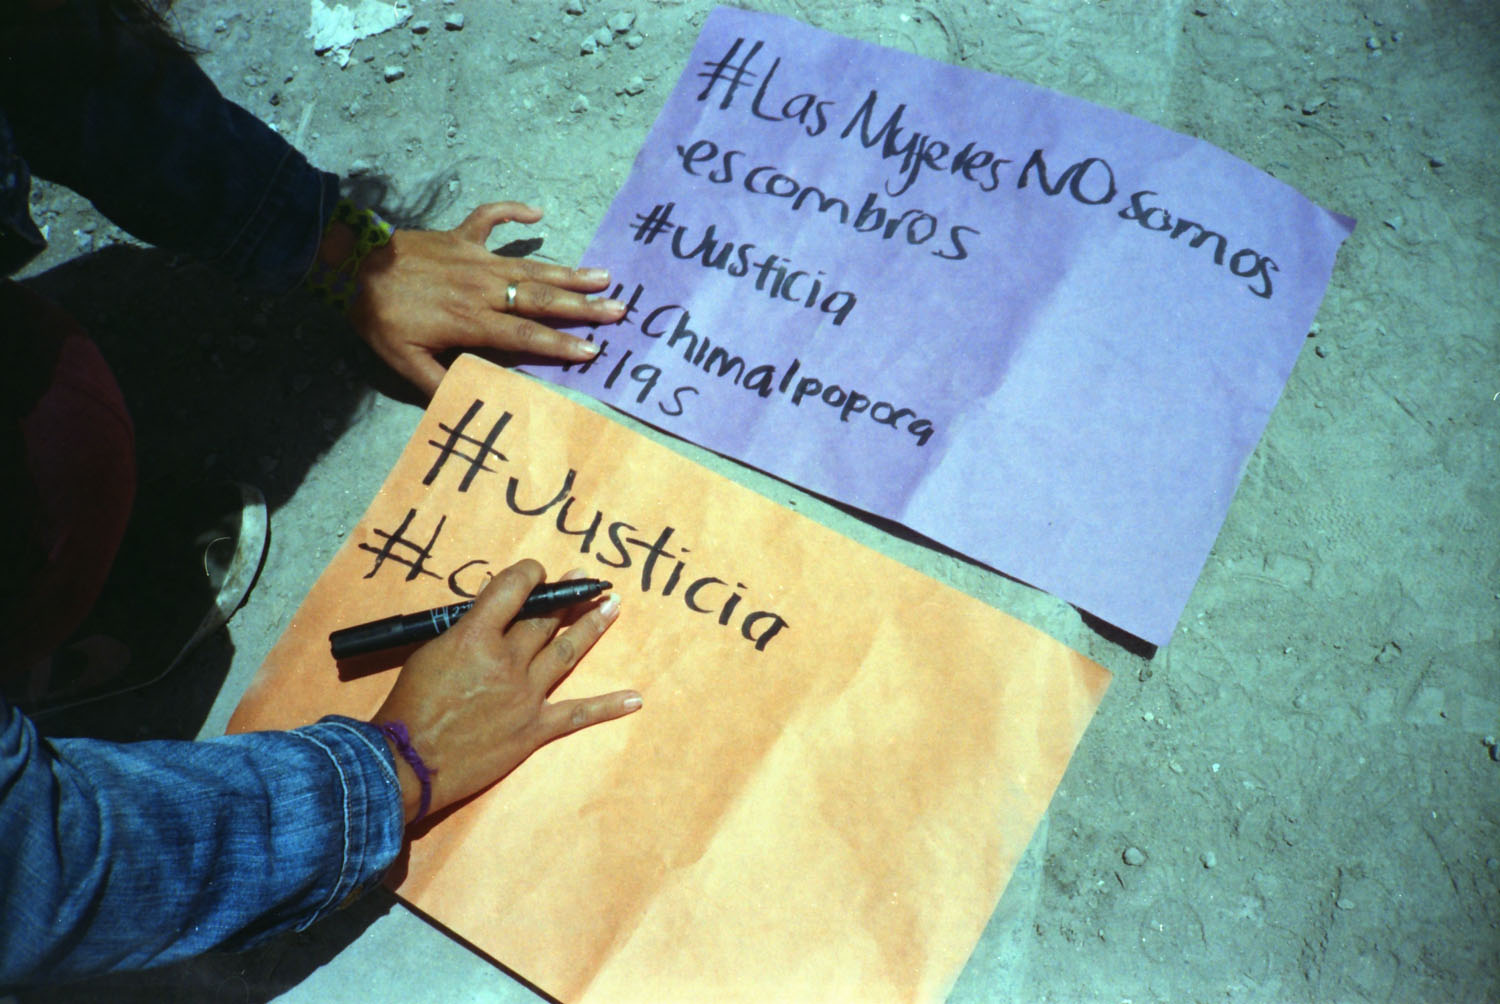 #Las Mujeres NO somos
escombros
#Justicia
#Chimalpopoca
#19s
#Justicia
#